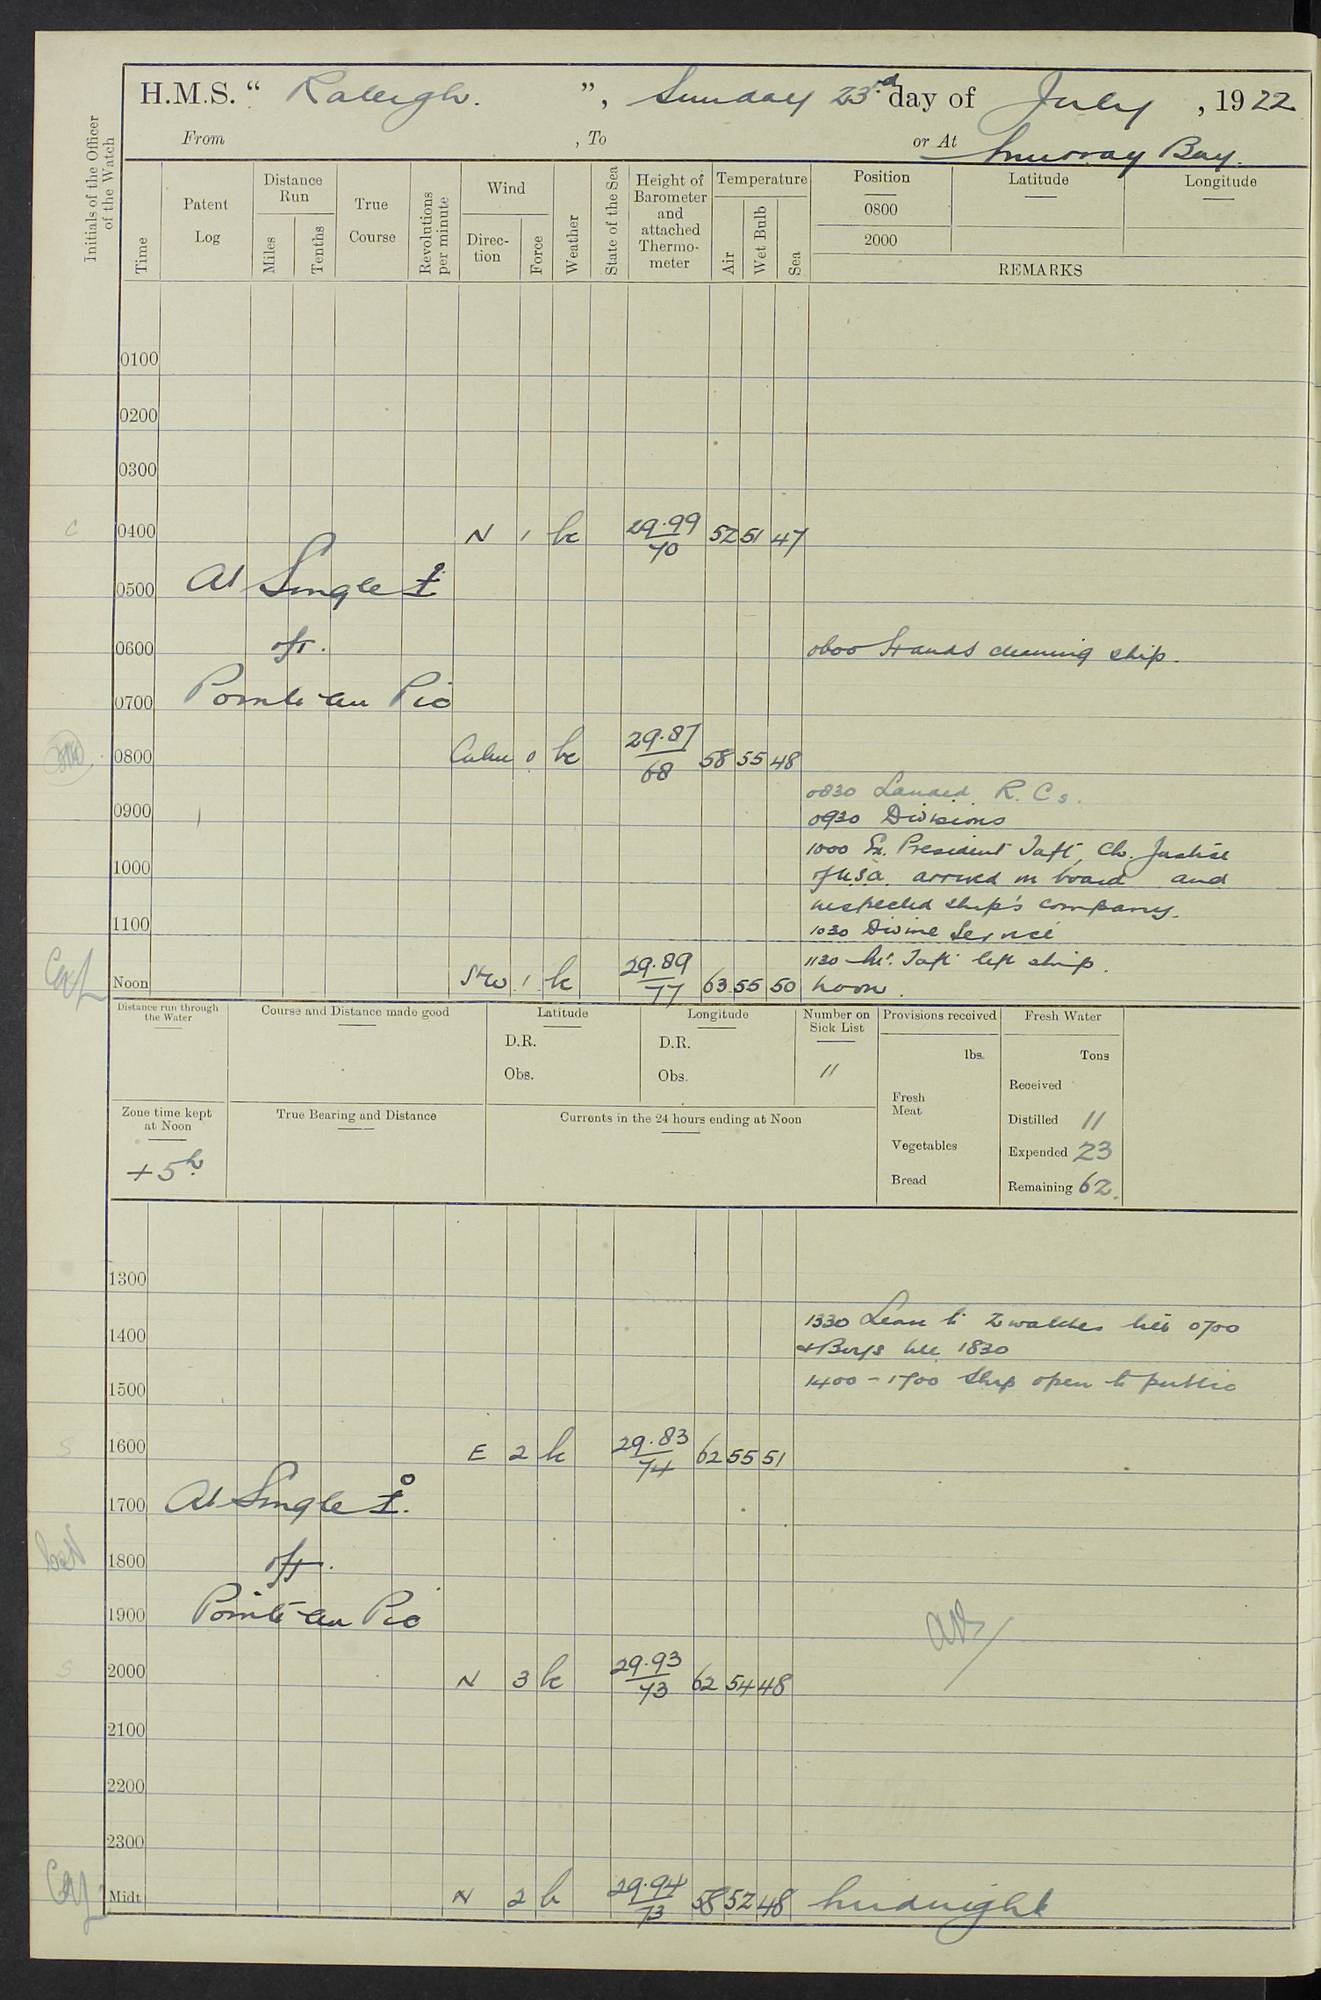 H.M.S. “ Raleigh. ”, Sunday 23rd day of July, 1922
From , To or At Murray Bay.
Initials of the Officer of the Watch
Time
Patent Log
Distance Run
Miles
Tenths
True Course
Revolutions per minute
Wind
Direction
Force
Weather
State of the Sea
Height of Barometer and attached Thermometer
Temperature
Air
Wet Bulb
Sea
Position
0800
2000
Latitude
Longitude
REMARKS
0100
0200
0300
0400 N 1 bc 29.99/70 52 51 47
At Single ⚓
0500
0600 off. 0600 Hands cleaning ship.
Pointe au Pic
0700
0800 Calm 0 bc 29.87/68 58 55 48
0830 Landed R.Cs.
0900 0930 Divisions
1000 Ex. President Taft, Ch. Justice
1000 of U.S.A. arrived on board and
inspected ship's company.
1100 1030 Divine Service
1130 Mr. Taft left ship.
Noon SW 1 bc 29.89/77 63 55 50 Noon.
Distance run through the Water
Course and Distance made good
Latitude
D.R.
Obs.
Longitude
D.R.
Obs.
Number on Sick List
11
Provisions received
lbs.
Fresh Meat
Vegetables
Bread
Fresh Water
Tons
Received
Distilled 11
Expended 23
Remaining 62.
Zone time kept at Noon
+5h
True Bearing and Distance
Currents in the 24 hours ending at Noon
1300
1330 Leave to 2 watches till 0700
1400 & Boys till 1830
1400 - 1700 Ship open to public
1500
1600 E 2 bc 29.83/74 62 55 51
1700 At Single ⚓.
1800 off.
1900 Pointe au Pic
2000 N 3 bc 29.93/73 62 54 48
2100
2200
2300
Midt. N 2 b 29.94/73 58 52 48 Midnight